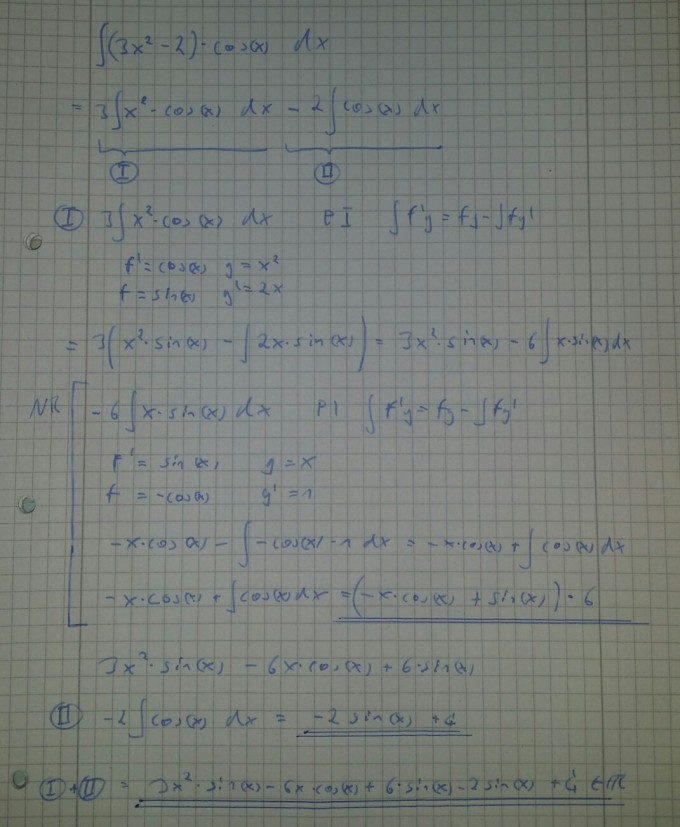 ∫(3x² - 2) · cos(x) dx
= 3∫x² · cos(x) dx - 2∫cos(x) dx
I II
I 3∫x² · cos(x) dx PI ∫f'g = fg - ∫fg'
f' = cos(x) g = x²
f = sin(x) g' = 2x
= 3(x² · sin(x) - ∫2x · sin(x)) = 3x² · sin(x) - 6∫x · sin(x) dx
NR -6∫x · sin(x) dx PI ∫f'g = fg - ∫fg'
f' = sin(x) g = x
f = -cos(x) g' = 1
-x · cos(x) - ∫-cos(x) · 1 dx = -x · cos(x) + ∫cos(x) dx
-x · cos(x) + ∫cos(x) dx = (-x · cos(x) + sin(x)) · 6
3x² · sin(x) - 6x · cos(x) + 6 · sin(x)
II -2∫cos(x) dx = -2 sin(x) +
I + II = 3x² · sin(x) - 6x · cos(x) + 6 · sin(x) - 2 sin(x) +